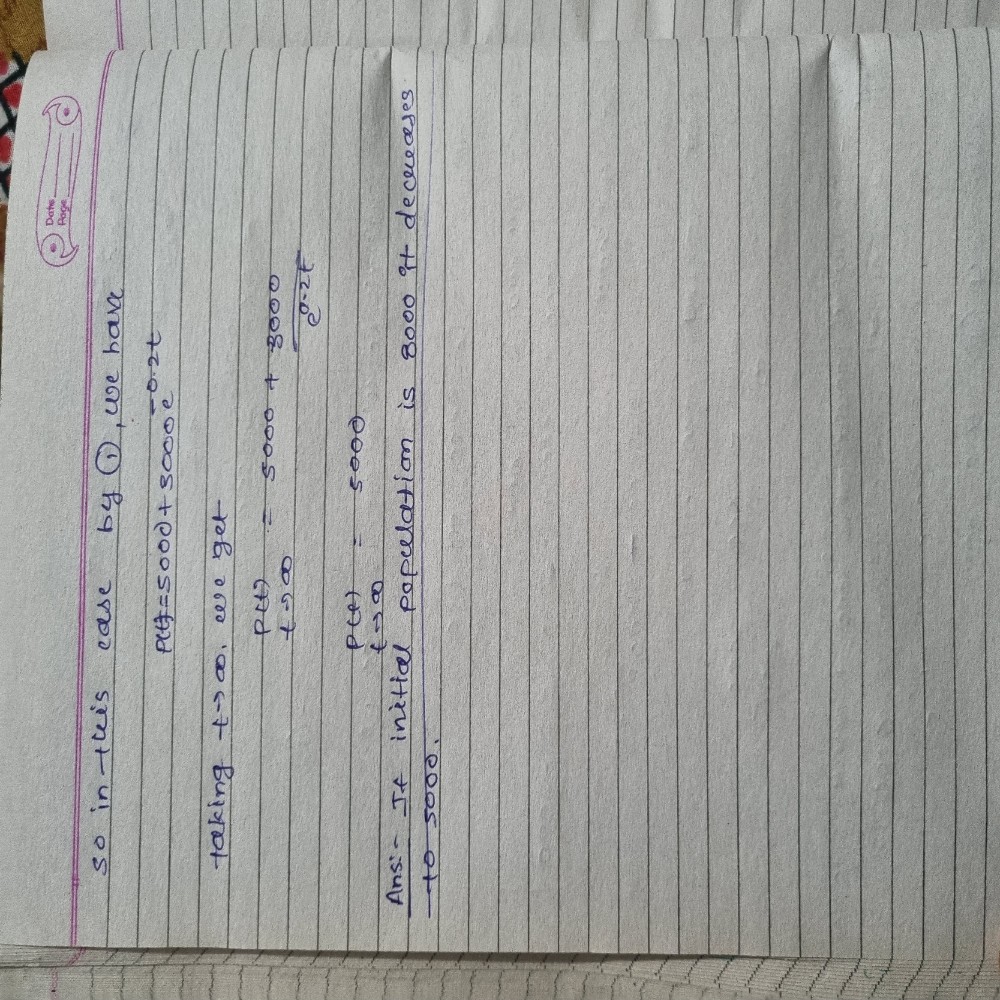 Date
Page
so in this case by ①, we have
P(t)=5000+3000e^-0.2t
taking t→∞, we get
P(t) = 5000 + 3000
t→∞ e^0.2t
P(t) = 5000
t→∞
Ans:- If initial population is 8000 It decreases
to 5000.